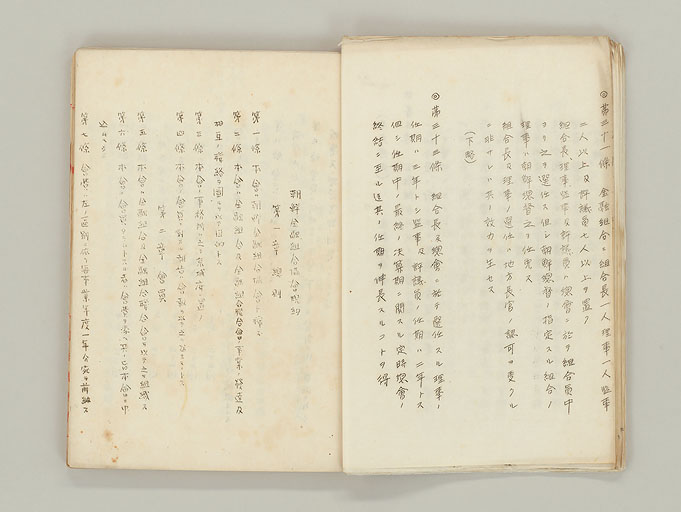 ◎第三十一條 金融組合ニ組合長一人理事一人監事
二人以上及評議員七人以上ヲ置ク
組合長、理事監事及評議員ハ總會ニ於テ組合員中
ヨリ之ヲ選任ス但シ朝鮮總督ノ指定スル組合ノ
理事ハ朝鮮總督之ヲ任免ス
組合長及理事ノ選任ハ地方長官ノ認可ヲ受クル
ニ非サレハ其ノ效力ヲ生セス
(下略)
◎第三十三條 組合長及總會ニ於テ選任スル理事ノ
任期ハ三年トシ監事及評議員ノ任期ハ二年トス
但シ任期中ノ最終ノ決算期ニ關スル定時總會ノ
終結ニ至ル迄其ノ任期ヲ伸長スルコトヲ得
朝鮮金融組合協會規約
第一章 總則
第一條 本會ハ朝鮮金融組合協會ト稱ス
第二條 本會ハ金融組合及金融組合聯合會ノ事業ノ發達及
相互ノ聯絡ヲ圖ルヲ以テ目的トス
第三條 本會ノ事務所ハ之ヲ京城府ニ置ク
第四條 本會ノ
第二章 會員
第五條 本會ハ金融組合及金融組合聯合會ヲ以テ之ヲ組織ス
第六條 本會ノ會員
第七條 會費ハ左ノ區別ニ依リ每事業年度一年分